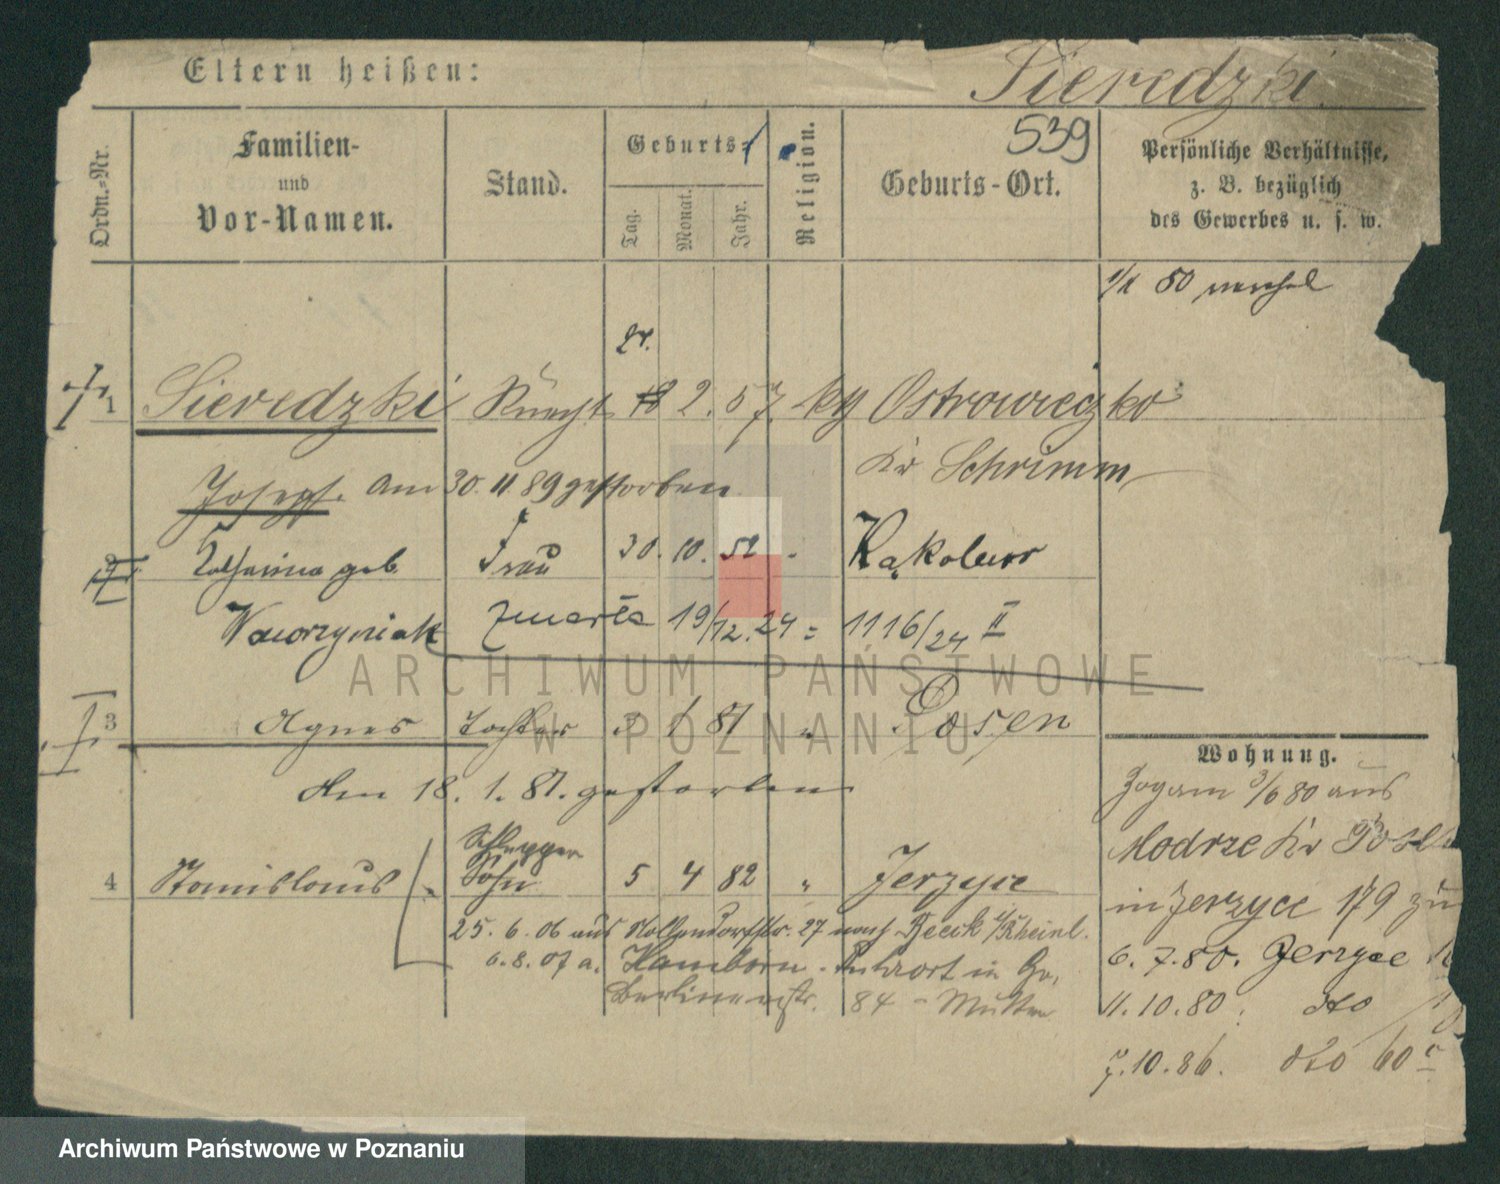 Eltern heißen:
Sieredzki.
539
Ordn.=Nr.
Familien-
und
Vor-Namen.
Stand.
Geburts=
Tag.
Monat.
Jahr.
Religion.
Geburts-Ort.
Persönliche Verhältnisse,
z. B. bezüglich
des Gewerbes u. s. w.
1 Sieredzki Knecht 2. 57. kg Ostrowieczko
Kr Schrimm
Joseph. am 30. 11. 89 gestorben
2 Catharina geb. Frau 30. 10. 52 Kąkolewo
Wawrzyniak zmarła 19/12. 24 = 1116/24 II
3 Agnes Tochter 1 81 Posen
den 18. 1. 81. gestorben
4 Stanislaus Sohn 5 4 82 " Jerzyce
25. 6. 06 aus Nollendorfstr. 27 nach Beeck i/Rheinl.
6. 8. 07 a. Hamborn - Ruhrort in
Berlinerstr. 84 - Mutter
Wohnung.
Zog am 3/6 80 aus
Modrze Kr Posen
in Jerzyce 179 zu
6. 7. 80. Jerzyce
11. 10. 80. dto
7. 10. 86. dto 60
ARCHIWUM PAŃSTWOWE
W POZNANIU
Archiwum Państwowe w Poznaniu